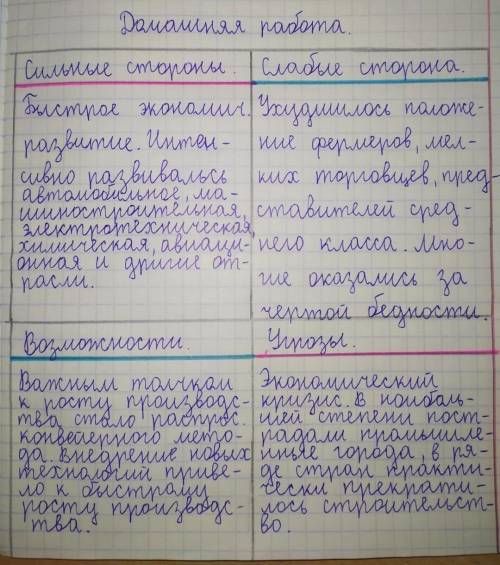 Домашняя работа.
Сильные стороны.
Быстрое экономич.
развитие. Интен-
сивно развивалсь
автомобильное, ма-
шиностроительная,
электротехническая,
химическая, авиаци-
онная и другие от-
расли.
Слабые сторона.
Ухудшилось положе-
ние фермеров, мел-
ких торговцев, пред-
ставителей сред-
него класса. Мно-
гие оказались за
чертой бедности.
Возможности.
Важным толчком
к росту производс-
тва стало распрос.
конвейерного мето-
да. Внедрение новых
технологий приве-
ло к быстрому
росту производс-
тва.
Угрозы.
Экономический
кризис. В наиболь-
шей степени пост-
радали промышле-
нные города, в ря-
де стран практи-
чески прекрати-
лось строительст-
во.